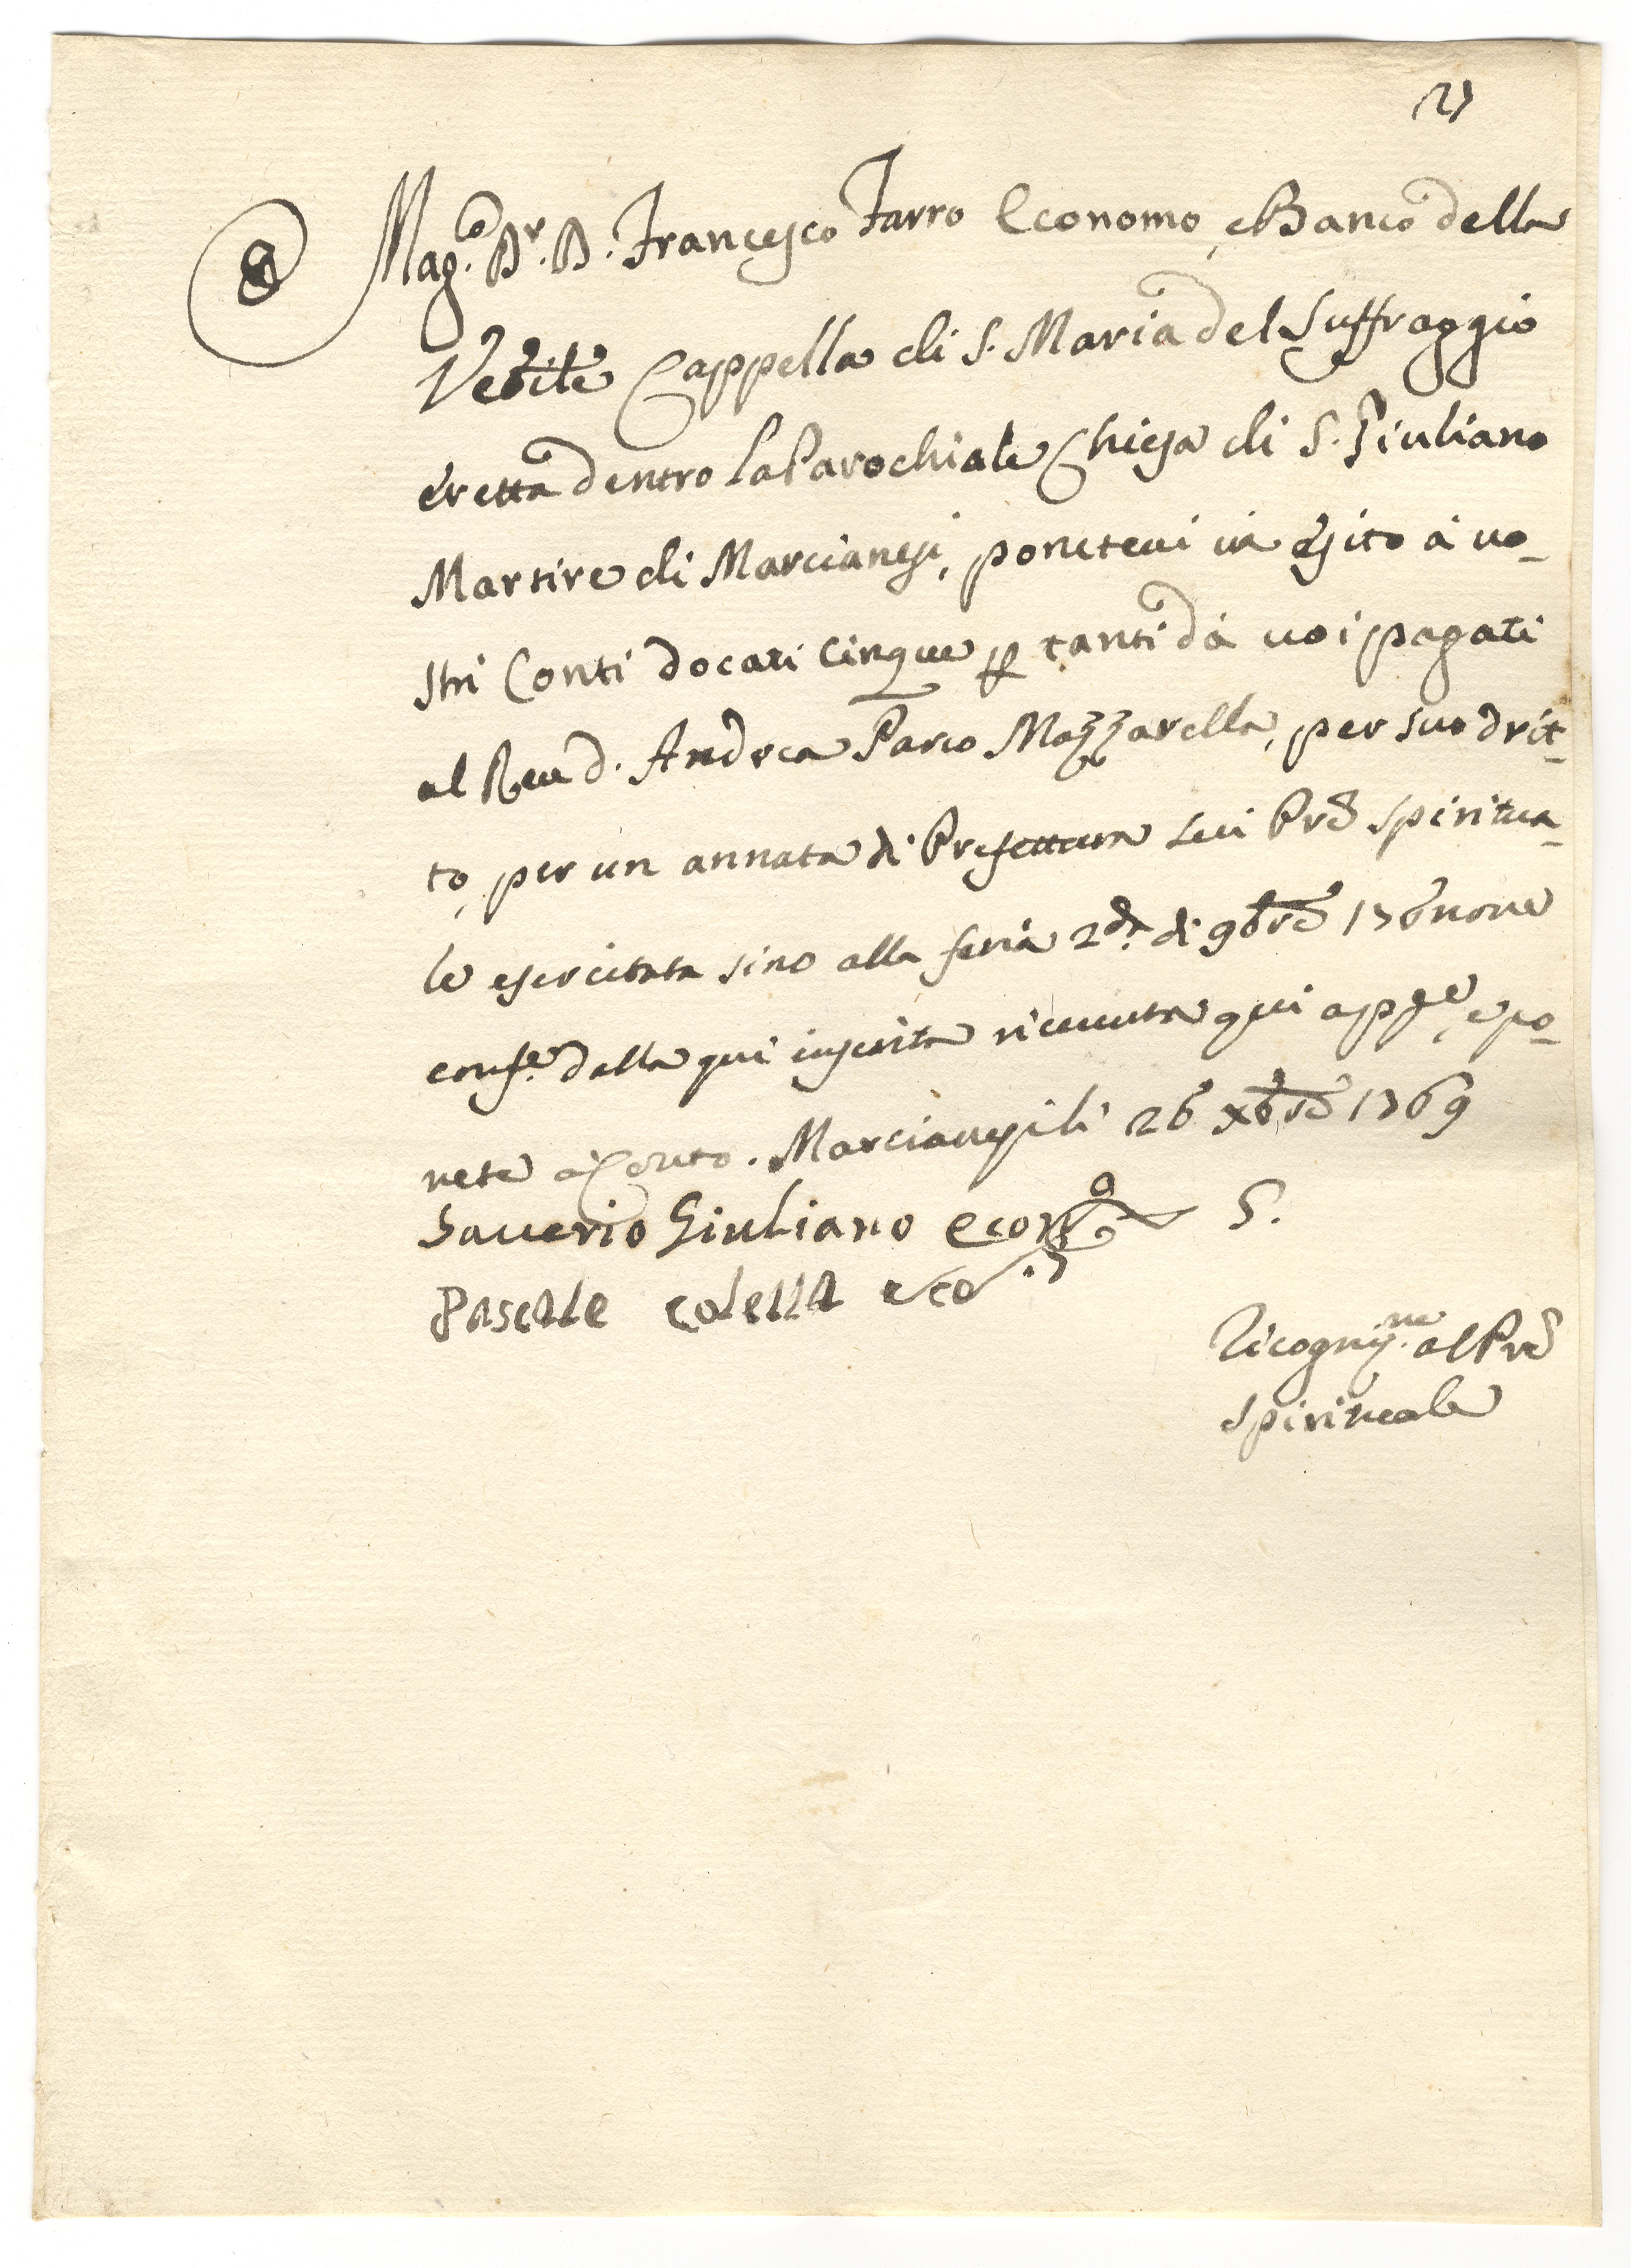 8
Mag.co Dr. D. Francesco Farro Economo, e Banco della
Ven.le Cappella di S. Maria del Suffraggio
eretta dentro la Parochiale Chiesa di S. Giuliano
Martire di Marcianesi, ponetevi in esito à vo-
stri Conti docati cinque p tanti da voi pagati
al Reu d. Andrea Mazzarella, per suo drit-
to, per un annata di Prefettura seu Pre Spiritua-
le esercitata sino alla feria 2da di 9bre 176nove
conf.e dalla qui inserita ricevuta qui app.e, e po-
nete à Conto. Marcianesi li 26 xbre 1769
Saverio Giuliano econ.o S.
Pascale Colella eco
Ricogniz.ne al Pre
Spirituale